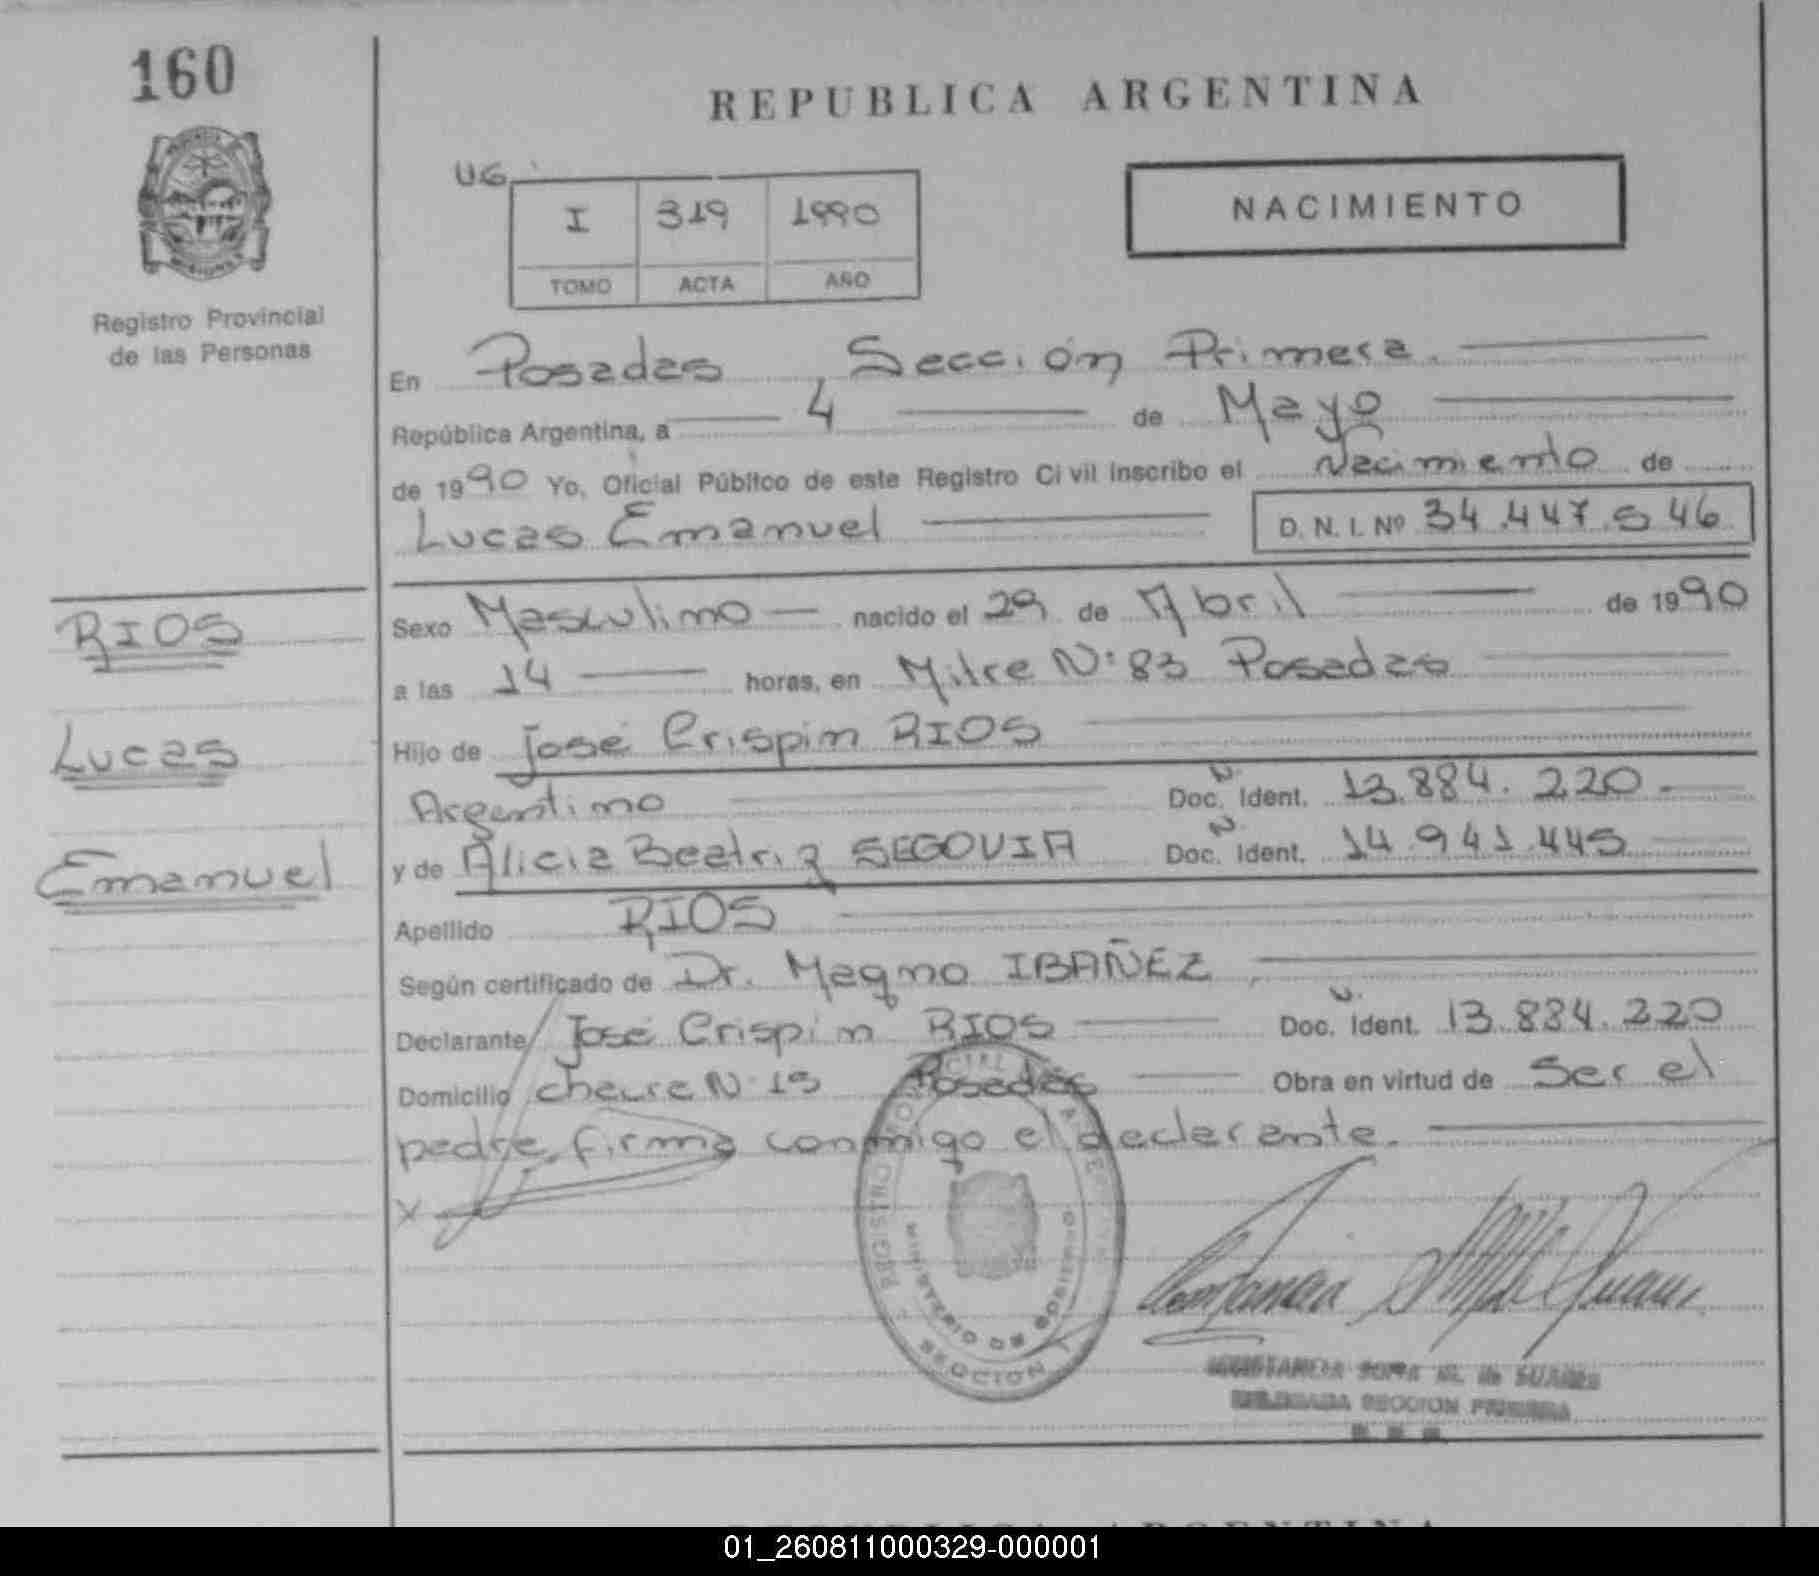 160
REPUBLICA ARGENTINA
UG.
I 319 1990
TOMO ACTA AÑO
NACIMIENTO
MISIONES
Registro Provincial
de las Personas
En Posadas, Sección Primera.
República Argentina, a 4 de Mayo
de 1990 Yo, Oficial Público de este Registro Civil inscribo el Nacimiento de
Lucas Emanuel D. N. I. Nº 34.447.546
RIOS
Lucas
Emanuel
Sexo Masculino nacido el 29 de Abril de 1990
a las 14 horas, en Mitre Nº 83 Posadas
Hijo de José Crispin RIOS
Argentino Doc. N. Ident. 13.884.220.
y de Alicia Beatriz SEGOVIA Doc. N. Ident. 14.941.445
Apellido RIOS
Según certificado de Dr. Magno IBAÑEZ
Declarante José Crispin RIOS Doc. N. Ident. 13.884.220
Domicilio Nº 15 Posadas Obra en virtud de Ser el
padre, firma conmigo el declarante.
X
REGISTRO PROVINCIAL DE LAS PERSONAS
MINISTERIO DE GOBIERNO
SECCION 1
CONSTANCIA SUAREZ
DELEGADA SECCION PRIMERA
01_260811000329-000001